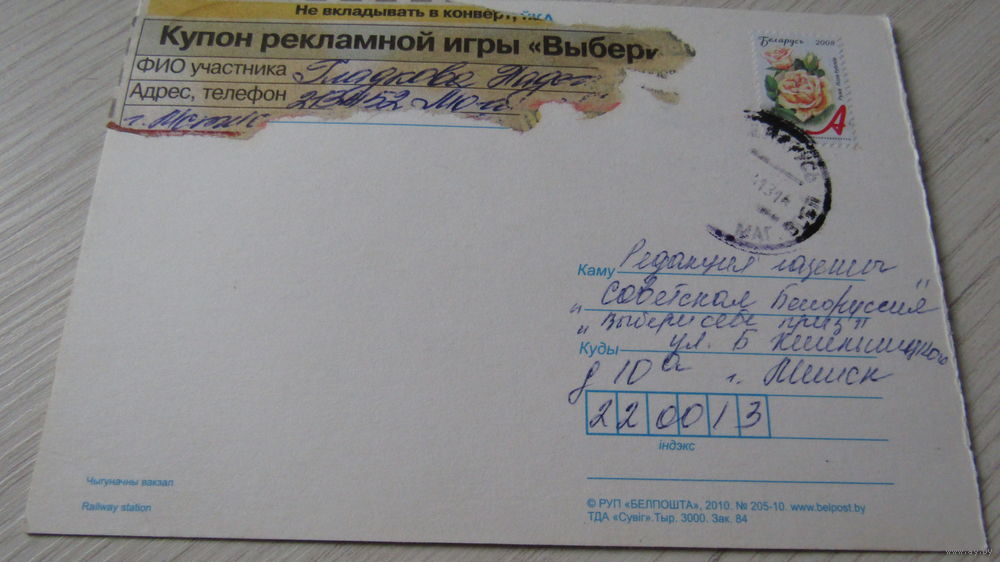 Не вкладывать в конверт,
Купон рекламной игры «Выбери
ФИО участника Гладкова Надеж
Адрес, телефон
г.
Беларусь 2008
A
МАГ
Каму Редакция газеты
"Советская Белоруссия"
"Выбери себе приз"
Куды ул. Б Хмельницкого
д 10 а г. Минск
220013
індэкс
Чыгуначны вакзал
Railway station
© РУП «БЕЛПОШТА», 2010. № 205-10. www.belpost.by
ТДА «Сувіг».Тыр. 3000. Зак. 84